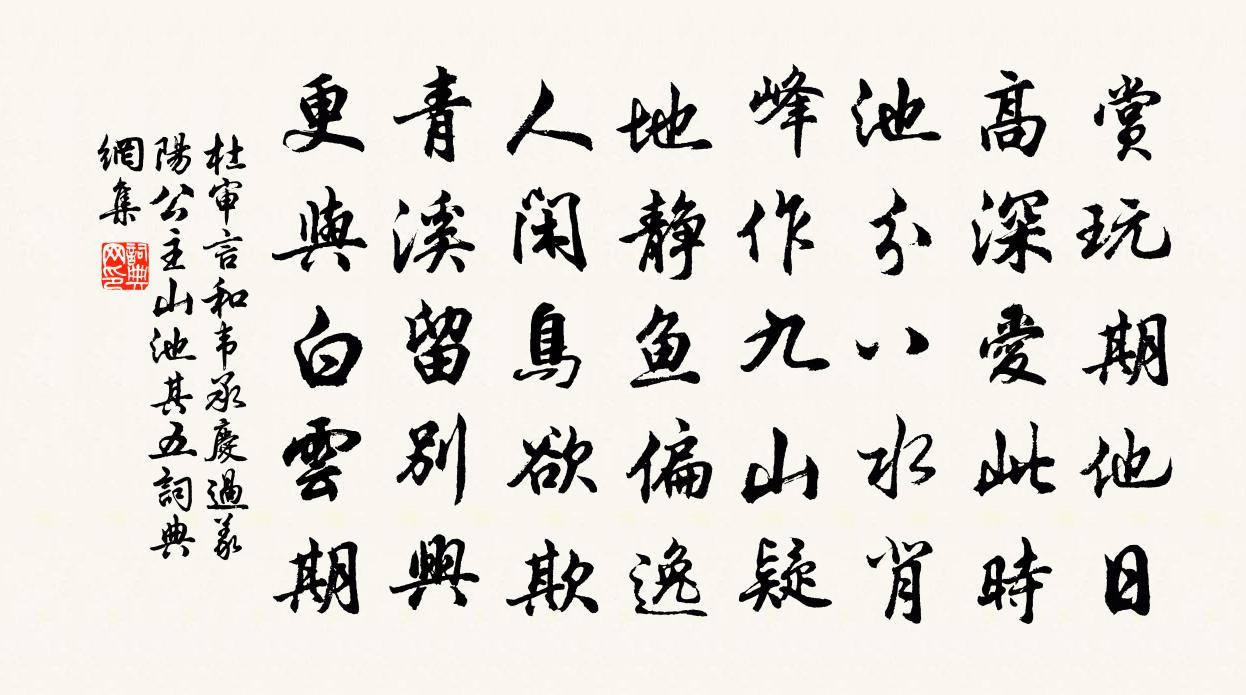 賞玩期他日
高深愛此時
池分八水背
峰作九山疑
地靜魚偏逸
人閑鳥欲欺
青溪留別興
更與白雲期
杜审言和韦承慶過義
陽公主山池其五詞典
網集
詞典
网印